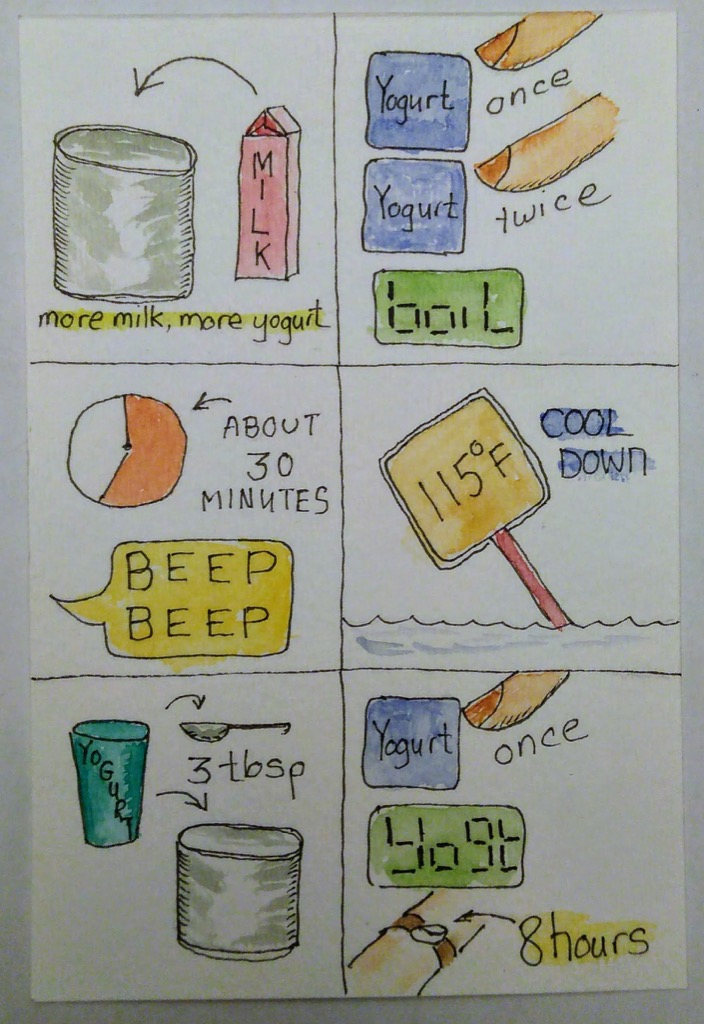 MILK
more milk, more yogurt
Yogurt
once
Yogurt
twice
boiL
ABOUT
30
MINUTES
BEEP
BEEP
115°F
COOL
DOWN
YOGURT
3 tbsp
Yogurt
once
yogt
8 hours